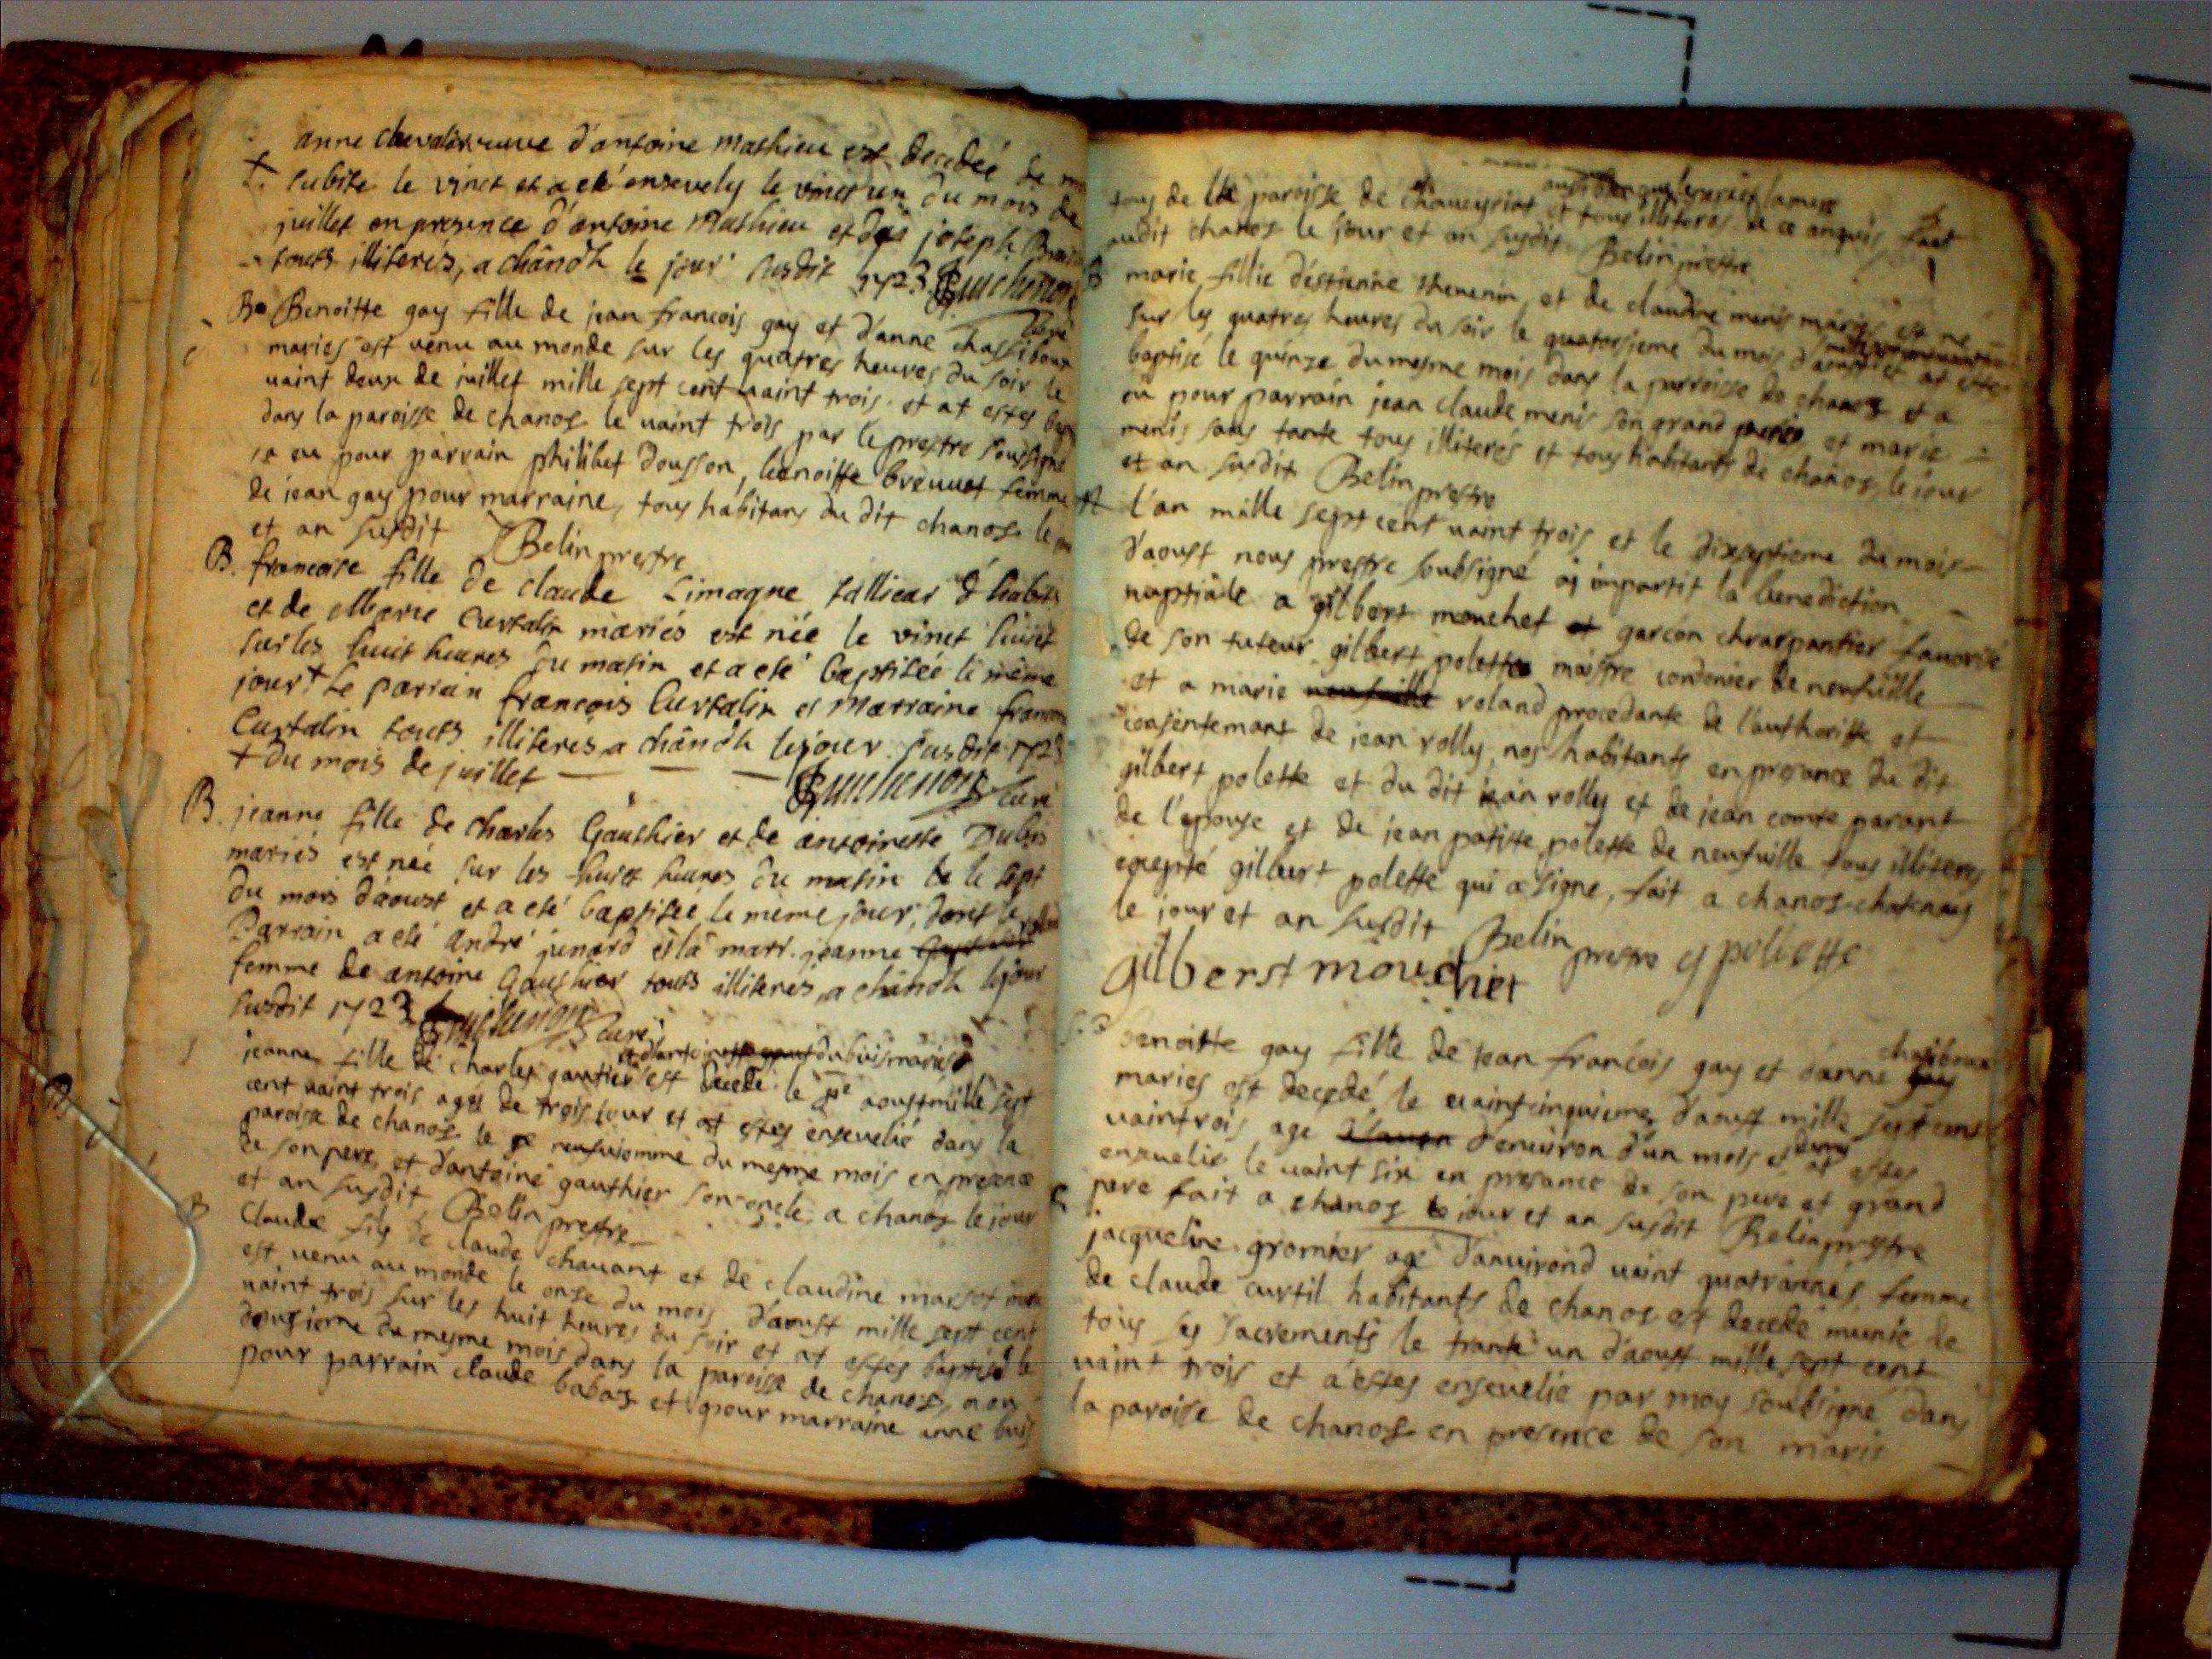 anne chevalier veuve d'antoine Mathieu est decedeé de
✝. subite le vinct et a eté ensevely le vinct un du mois de
juillet en presence d'antoine Mathieu et de joseph
touts illiterés, a chânôz le jour susdit 1723 Guichenon
curé
B Benoitte gay fille de jean francois gay et d'anne chassiboux
maries est venu au monde sur les quatres heures du soir le
vaint deux de juillet mille sept cent vaint trois et at estes
dans la paroisse de chanos le vaint trois par le prestre soussigné
a eu pour parrain philibet dousson, benoitte breuuet femme
de jean gay pour marraine, tous habitans du dit chanos le
et an susdit Belin prestre
B. francoise fille de claude Limagne tallieur d'habits
et de Marie Curtalin mariés est née le vinct huict
sur les huit heures du matin et a eté baptiseé le même
jour ✝ Le parrain francois Curtalin et Marraine
Curtalin touts illiterés a chânôz le jour susdit 1723
✝ du mois de juillet — — — Guichenon curé
B. jeanne fille de charles Gauthier et de antoinette Dubois
mariés est née sur les huict heures du matin le le sept
du mois d'aoust et a eté baptisée le même jour, dont le
Parrain a eté André junard et la marr. jeanne
femme de antoine Gauthier touts illiterés, a chânôz le jour
susdit 1723 Guichenon curé
et d'antoinette dubuis mariés
jeanne fille de charles gautier est decede le aoust mille sept
cent vaint trois agés de trois jour et at estes ensevelié dans la
paroisse de chanos le neufuiomme du mesme mois en presence
de son pere, et d'antoine gauthier son oncle, a chanos le jour
et an susdit Belin prestre
B Claude fils de claude chavant et de claudine massot
est venu au monde le onse du mois d'aoust mille sept cent
vaint trois sur les huit heures du soir et at estés baptisé le
dousieme du mesme mois dans la paroisse de chanos, a eu
pour parrain claude babaz et pour marraine anne buis
tous de la paroisse de chaveyriat et tous illiteres de ce enquis fait
audit chanos le jour et an susdit Belin prestre
B marie fillie d'estienne thevenin, et de claudine menis mariés est né
sur les quatres heures du soir le quatorsieme du mois d'aoust et at estes
baptisé le quinze du mesme mois dans la parroisse de chanos et a
eu pour parrain jean claude menis son grand et marie
menis sa tante tous illiterés et tous habitants de chanos, le jour
et an susdit Belin prestre
l'an mille sept cent vaint trois et le dixseptieme du mois
d'aoust nous prestre soubsigné ai impartit la benediction
nuptiale a gilbert mouchet garcon chrarpantier
de son tuteur gilbert polette maistre cordonier de neufuille
et a marie roland procedante de l'authoritte et
consentemant de jean rolly, nos habitants en presance du dit
gilbert polette et du dit jean rolly et de jean comte parant
de l'epouse et de jean patiste polette de neufuille tous illiteres
exepté gilbert polette qui a signe, fait a chanos chatenay
le jour et an susdit Belin prestre g pollette
gilberst mouchet
chasiboux
benoitte gay fille de jean francois gay et d'anne
maries est decedé le vaintcinquieme d'aoust mille sept cent
vaintrois age d'environ d'un mois et demy at estes
ensevelie le vaint six en presance de son pere et grand
pere fait a chanos le jour et an susdit Belin prestre
jacqueline gromier age d'anvirond vaint quatrannés, femme
de claude curtil habitants de chanos est decedé munie de
tous ses sacrements le trante un d'aoust mille sept cent
vaint trois et a estes ensevelie par moy soubsigné dans
la paroisse de chanos en presence de son maris